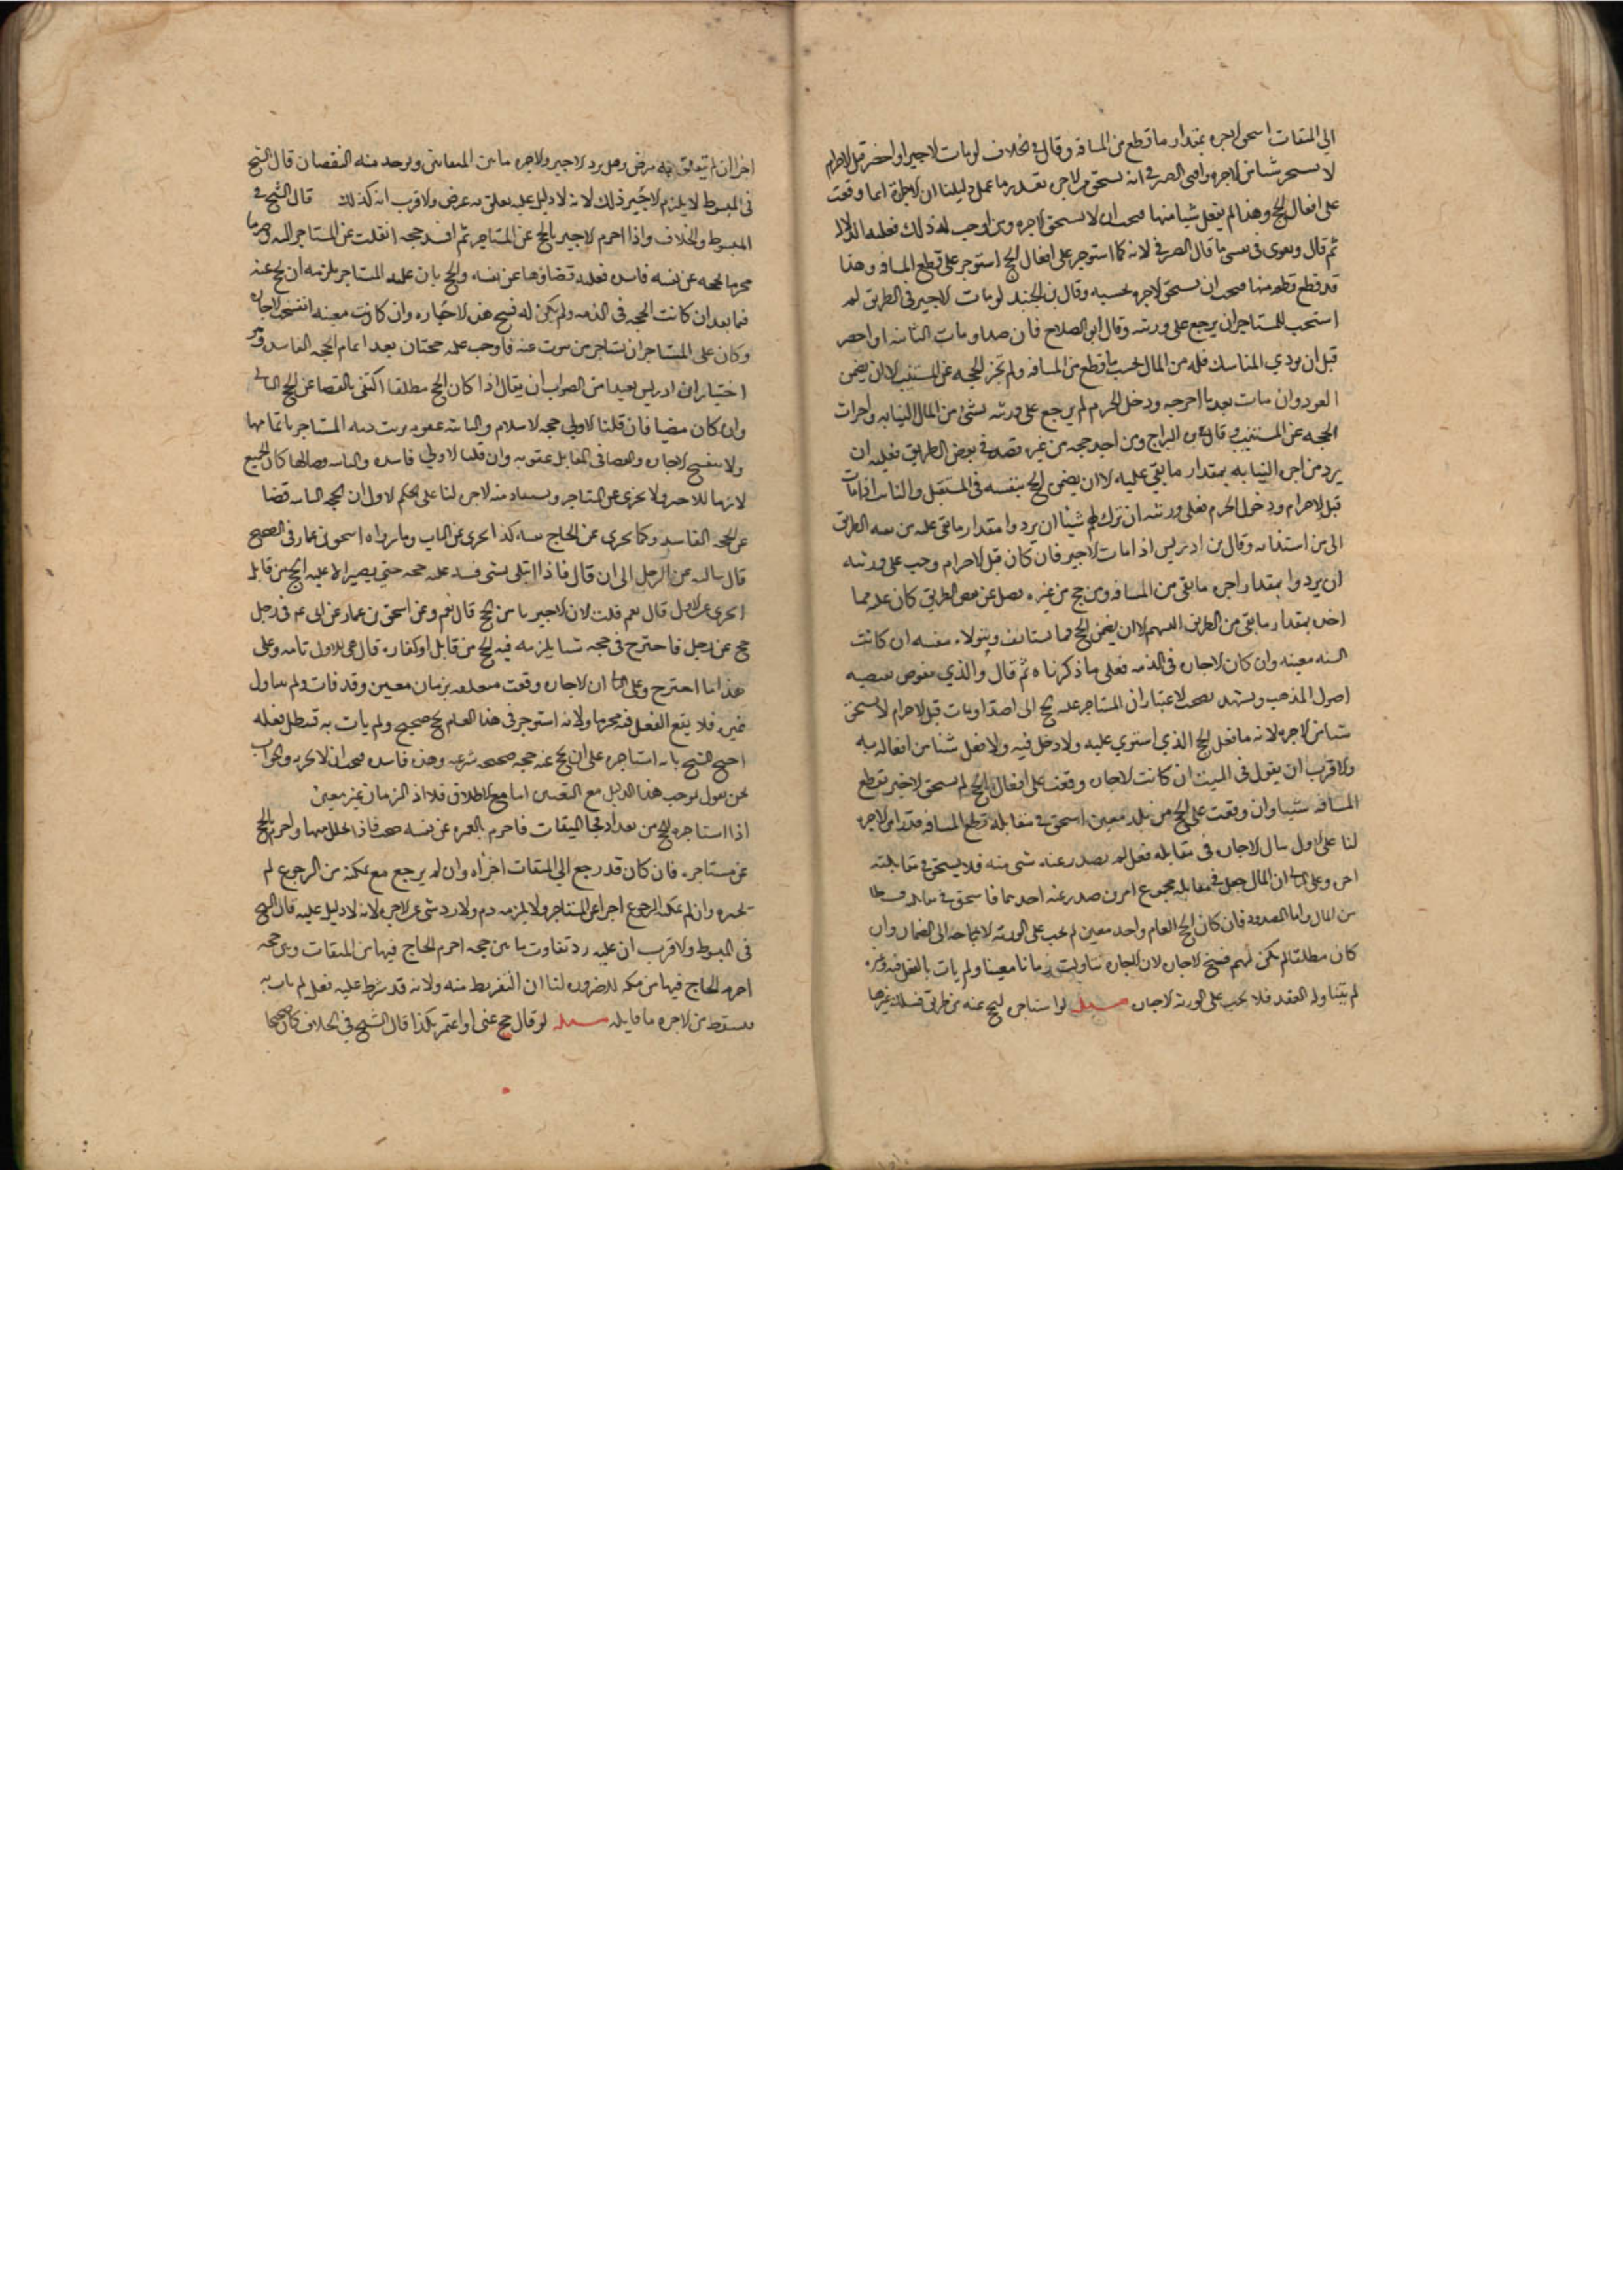 الي الميقات استحق اجره بمقدار ما قطع من المسافة وقال في الخلاف لومات الاجير او احضر قبل الاحرام
لا يستحق شيا من الاجره وافتى الصيرفي انه يستحق من الاجر بقدر ما عمل دليلنا ان الاجارة انما وقعت
على افعال الحج وهذا لم يفعل شيا منها فيجب ان لا يستحق الاجره ومن اوجب له ذلك فعليه الدلاله
ثم قال ويقوى في نفسي ما قال الصيرفي لانه كما استوجر على افعال الحج استوجر على قطع المسافه وهذا
قد قطع قطعه منها فيجب ان يستحق الاجره بحسبه وقال بن الجنيد لومات الاجير في الطريق لم
استحب للمستاجر ان يرجع على ورثته وقال ابو الصلاح فان صد او مات النائب او احصر
قبل ان يودي المناسك فله من المال بحسب ما قطع من المسافه ولم تجز الحجه عن المستنيب الا ان يضمن
العود وان مات بعد ما احرم ودخل الحرم لم يرجع على ورثته بشي من المال النيابه واجزات
الحجه عن المستنيب وقال بن البراج ومن اخذ حجه من غيره فصد في بعض الطريق فعليه ان
يرد من اجر النيابه بمقدار ما بقي عليه الا ان يضمن الحج بنفسه في المستقبل والنائب اذا مات
قبل الاحرام ودخول الحرم فعلى ورثته ان ترك لهم شيئا ان يردوا مقدار ما بقي عليه من الطريق
الى من استنابه وقال بن ادريس اذا مات الاجير فان كان قبل الاحرام وجب على ورثته
ان يردوا بمقدار اجر ما بقي من المسافه ومن حج من غيره فصد عن بعض الطريق كان عليه مما
اخذ بمقدار ما بقي من الطريق اللهم الا ان يضمن الحج فيما يستانف ويتولاه بنفسه ان كانت
السنه معينه وان كان الاجاره في الذمه فعلى ما ذكرناه ثم قال والذي
اصول المذهب ويشهد بصحته الاعتبار ان المستاجر عليه الحج اذا صد او مات قبل الاحرام لا يستحق
شيا من الاجره لانه ما فعل الحج الذي استوجر عليه ولا دخل فيه ولا فعل شيا من افعاله
والاقرب ان يقول في الميت ان كانت الاجاره وقعت على افعال الحج لم يستحق الاجير بقطع
المسافه شيا وان وقعت على الحج من بلد معين استحق في مقابلة قطع المسافه قدرا من الاجره
لنا على الاول ان الاجاره في مقابله فعل لم يصدر عنه شي منه فلا يستحق في مقابلته
اجر وعلى الثاني ان المال جعل في مقابله مجموع امرين صدر عنه احدهما فاستحق في مقابله قسطا
من المال واما المصدود فان كان الحج العام واحد معين لم يجب على الورثه الاجابه الى الضمان وان
كان مطلقا لم يكن لهم فسخ الاجاره لان الاجاره تناولت زمانا معينا ولم يات بالفعل فيه وغيره
لم يتناوله العقد فلا يجب على الورثه الاجاره مسله لو استاجره ليحج عنه من طريق فسلك غيرها
اجزا ان لم يتعلق به غرض وهل يرد الاجير الاجره ما بين المسافتين ويوخذ منه النقصان قال الشيخ
في المبسوط لا يلزم الاجير ذلك لانه لا دليل عليه تعلق به غرض والاقرب انه كذلك قال الشيخ في
المبسوط والخلاف واذا احرم الاجير بالحج عن المستاجر ثم افسد حجه انقلبت عن المستاجر اليه وصار
محرما بحجه عن نفسه فاسده فعليه قضاؤها عن نفسه والحج بان عليه للمستاجر يلزمه ان يحج عنه
فيما بعد ان كانت الحجه في الذمه ولم يكن له فسخ هذه الاجاره وان كانت معينه انفسخت الاجاره
وكان على المستاجر ان يستاجر من ينوب عنه فاوجب عليه حجتان بعد اتمام الحجه الفاسده
اختيار ابن ادريس بعيدا من الصواب ان يقال اذا كان الحج مطلقا اكتفى بالقضا عن الحج الثاني
وان كان مضيقا فان قلنا الاولي حجه الاسلام والثانيه عقوبه برئت ذمه المستاجر باتمامها
ولا تنفسخ الاجاره والقضا في القابل عقوبه وان قلنا الاولي فاسده والثانيه قضا لها كان الجميع
لازما للاجير ولا يجزي عن المستاجر ويستعاد منه الاجر لنا على الحكم الاول ان الحجه الثانيه قضا
عن الحجه الفاسده وكما يجزى عن الحاج نفسه كذا يجزى عن النايب وما رواه اسحق بن عمار في الصحيح
قال سالته عن الرجل الى ان قال فاذا ابتلى بشي فسد عليه حجه حتي يصير عليه الحج من قابل
ايجزي عن الاول قال نعم قلت لان الاجير ضامن الحج قال نعم وعن اسحق بن عمار عن ابي عبد الله في رجل
حج عن رجل فاجترح في حجه شيا يلزمه فيه الحج من قابل او كفاره قال هي للاول تامه وعلى
هذا ما اجترح وعلى الثاني ان الاجاره وقعت متعلقه بزمان معين وقد فات ولم يتناول
غيره فلا يقع الفعل فيه مجزيا ولانه استوجر في هذا العام لحج صحيح ولم يات به فيبطل فعله
احتج الشيخ بانه استاجره على ان يحج عنه حجه صحيحه شرعيه وهذه فاسده فيجب ان لا يجزيه والجواب
نحن نقول بموجب هذا الدليل مع التعيين اما مع الاطلاق فلا اذ الزمان غير معين
اذا استاجره للحج من بغداد فجا الميقات فاحرم بالعمره عن نفسه صحت فاذا تحلل منها واحرم بالحج
عن مستاجره فان كان قد رجع الي الميقات اجزاه وان لم يرجع مع تمكنه من الرجوع لم
يجزه وان لم يمكنه الرجوع اجزا عن المستاجر ولا يلزمه دم ولا رد شي من الاجره لانه لا دليل عليه قال الشيخ
في المبسوط والاقرب ان عليه رد تفاوت ما بين حجه احرم الحاج فيها من الميقات وبين حجه
احرم الحاج فيها من مكه للضروره لنا ان التفريط منه ولانه قد شرط عليه فعل لم يات به
فسقط من الاجره ما قابله مسله لو قال حج عني او اعتمر بكذا قال الشيخ في الخلاف كان صحيحا